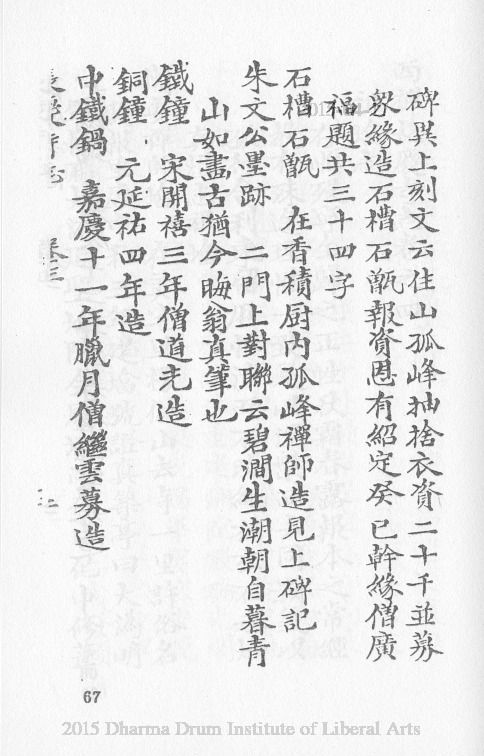 碑其上刻文云住山孤峰抽捨衣資二十千並募
衆緣造石槽石甑報資恩有紹定癸巳幹緣僧廣
福題共三十四字
石槽石甑 在香積厨內孤峰禪師造見上碑記
朱文公墨跡 二門上對聯云碧澗生潮朝自暮青
山如畵古猶今晦翁真筆也
鐵鐘 宋開禧三年僧道光造
銅鐘 元延祐四年造
中鐵鍋 嘉慶十一年臘月僧繼雲募造
卷三
67
2015 Dharma Drum Institute of Liberal Arts